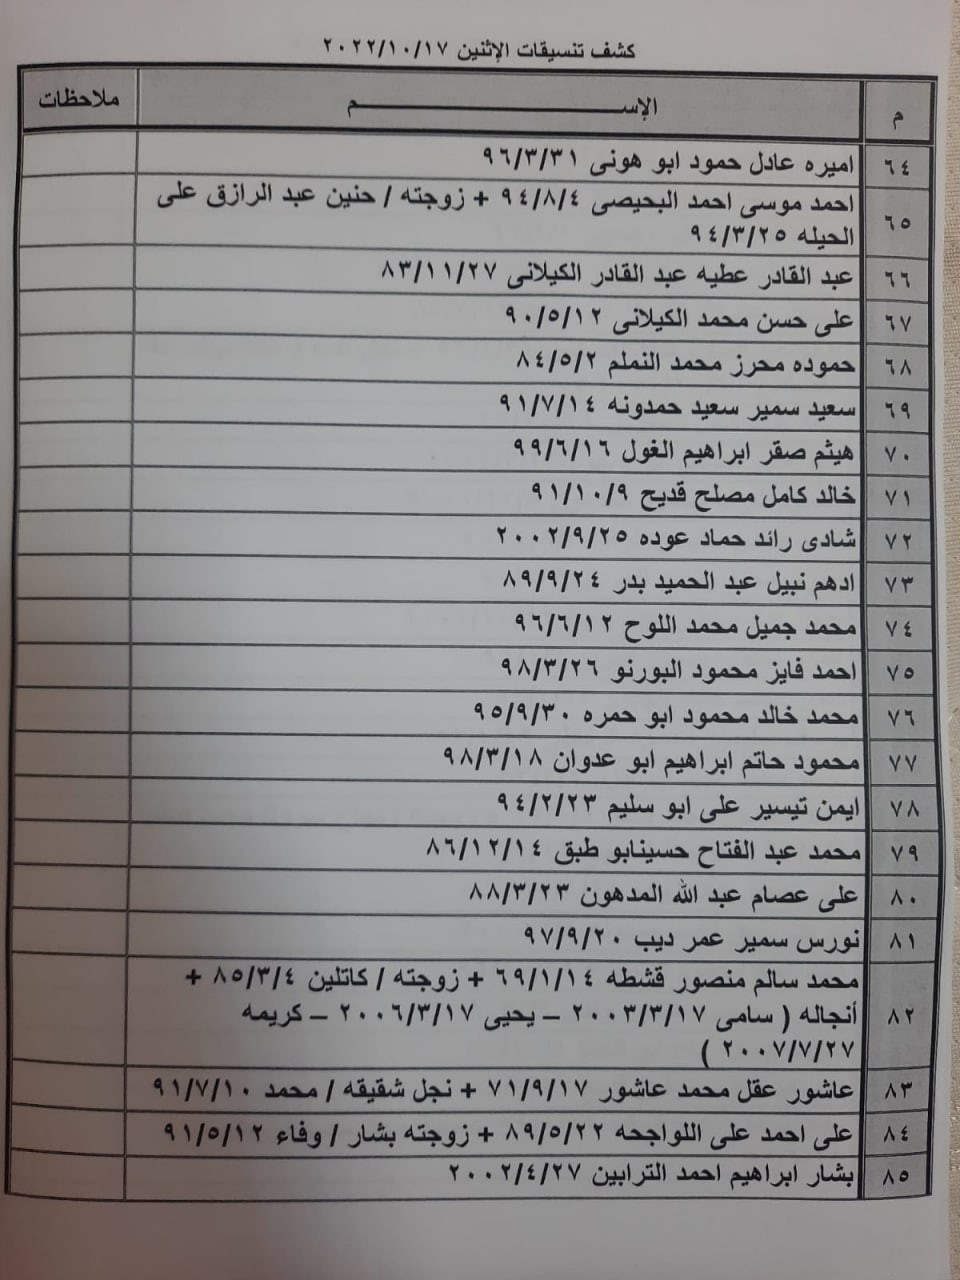 كشف تنسيقات الإثنين ٢٠٢٢/١٠/١٧
م الإســـــــــم ملاحظات
٦٤ اميره عادل حمود ابو هونى ٩٦/٣/٣١
٦٥ احمد موسى احمد البحيصى ٩٤/٨/٤ + زوجته / حنين عبد الرازق على
الحيله ٩٤/٣/٢٥
٦٦ عبد القادر عطيه عبد القادر الكيلانى ٨٣/١١/٢٧
٦٧ على حسن محمد الكيلانى ٩٠/٥/١٢
٦٨ حموده محرز محمد النملم ٨٤/٥/٢
٦٩ سعيد سمير سعيد حمدونه ٩١/٧/١٤
٧٠ هيثم صقر ابراهيم الغول ٩٩/٦/١٦
٧١ خالد كامل مصلح قديح ٩١/١٠/٩
٧٢ شادى رائد حماد عوده ٢٠٠٢/٩/٢٥
٧٣ ادهم نبيل عبد الحميد بدر ٨٩/٩/٢٤
٧٤ محمد جميل محمد اللوح ٩٦/٦/١٢
٧٥ احمد فايز محمود البورنو ٩٨/٣/٢٦
٧٦ محمد خالد محمود ابو حمره ٩٥/٩/٣٠
٧٧ محمود حاتم ابراهيم ابو عدوان ٩٨/٣/١٨
٧٨ ايمن تيسير على ابو سليم ٩٤/٢/٢٣
٧٩ محمد عبد الفتاح حسينابو طبق ٨٦/١٢/١٤
٨٠ على عصام عبد الله المدهون ٨٨/٣/٢٣
٨١ نورس سمير عمر ديب ٩٧/٩/٢٠
٨٢ محمد سالم منصور قشطه ٦٩/١/١٤ + زوجته / كاتلين ٨٥/٣/٤ +
أنجاله ( سامى ٢٠٠٣/٣/١٧ – يحيى ٢٠٠٦/٣/١٧ – كريمه
٢٠٠٧/٧/٢٧ )
٨٣ عاشور عقل محمد عاشور ٧١/٩/١٧ + نجل شقيقه / محمد ٩١/٧/١٠
٨٤ على احمد على اللواجحه ٨٩/٥/٢٢ + زوجته بشار / وفاء ٩١/٥/١٢
٨٥ بشار ابراهيم احمد الترابين ٢٠٠٢/٤/٢٧